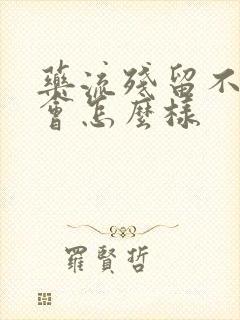 藥流殘留不
會怎麼樣
羅賢哲